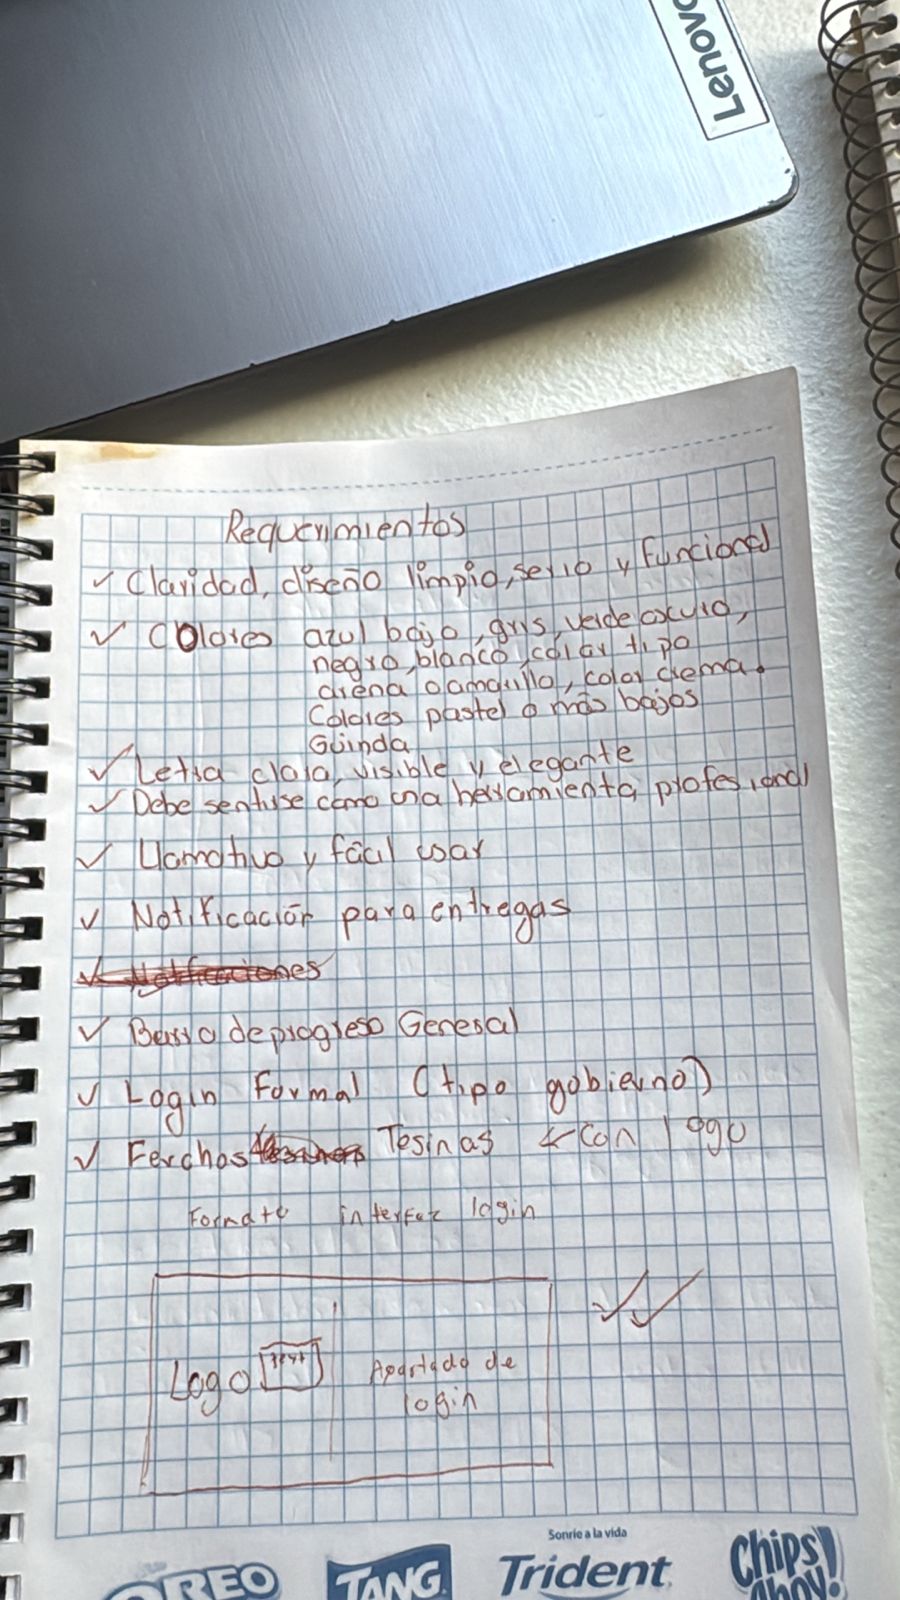 Lenovo
Requerimientos
✓ Claridad, diseño limpio, serio y funcional
✓ Colores azul bajo, gris, verde oscuro,
negro, blanco, color tipo
arena o amarillo, color crema.
Colores pastel o más bajos
Güinda
✓ Letra clara, visible y elegante
✓ Debe sentirse como una herramienta profesional
✓ Llamativo y fácil usar
✓ Notificación para entregas
✓ Notificaciones
✓ Barra de progreso General
✓ Login Formal (tipo gobierno)
✓ Ferchos Tesinas ← Con logo
Formato interfaz login
Logo text
Apartado de
login
Sonríe a la vida
OREO TANG Trident Chips Ahoy!